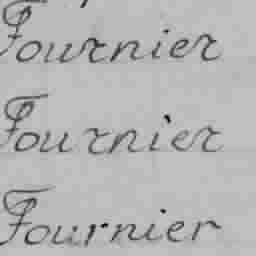 Fournier
Fournier
Fournier